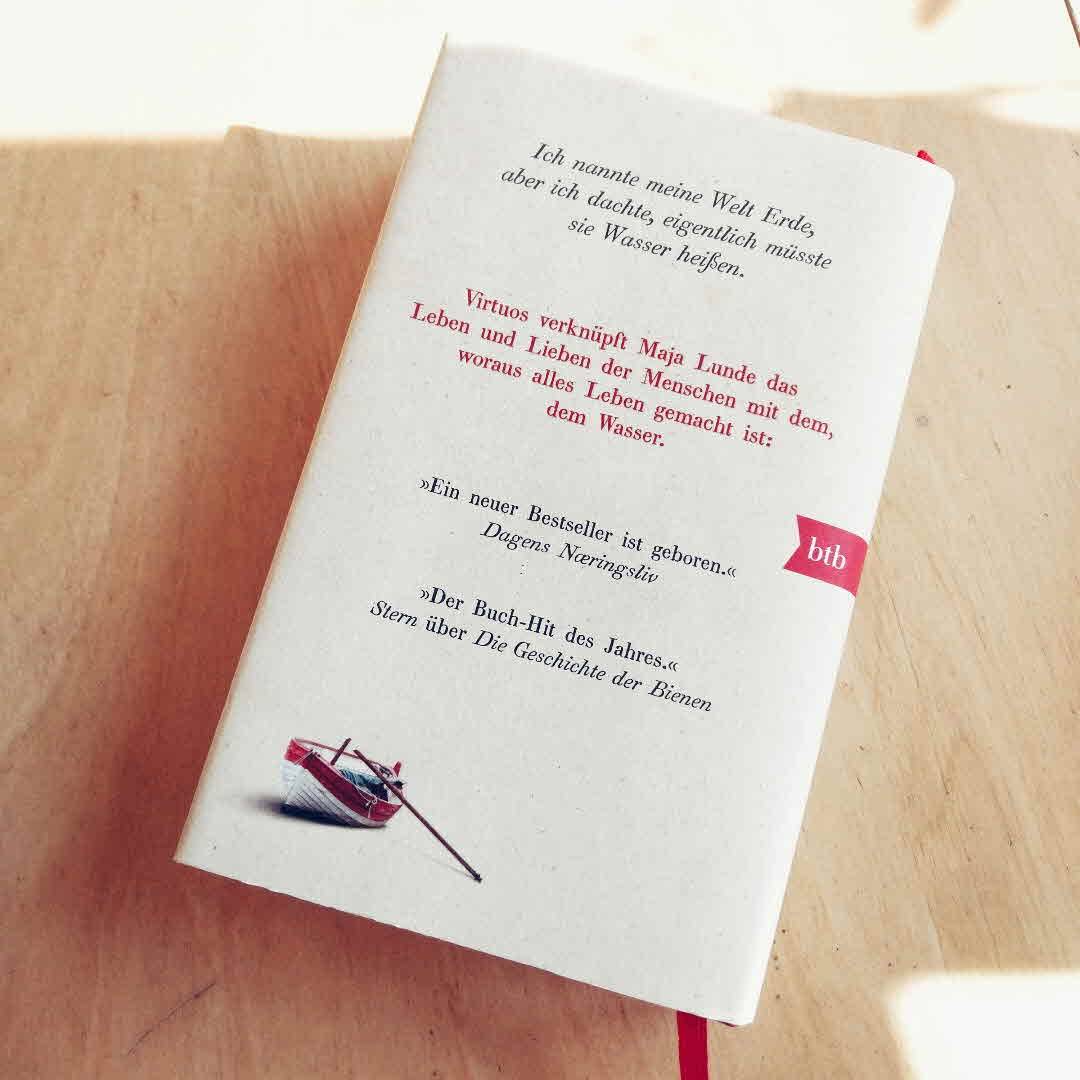 Ich nannte meine Welt Erde,
aber ich dachte, eigentlich müsste
sie Wasser heißen.
Virtuos verknüpft Maja Lunde das
Leben und Lieben der Menschen mit dem,
woraus alles Leben gemacht ist:
dem Wasser.
»Ein neuer Bestseller ist geboren.«
Dagens Næringsliv
btb
»Der Buch-Hit des Jahres.«
Stern über Die Geschichte der Bienen